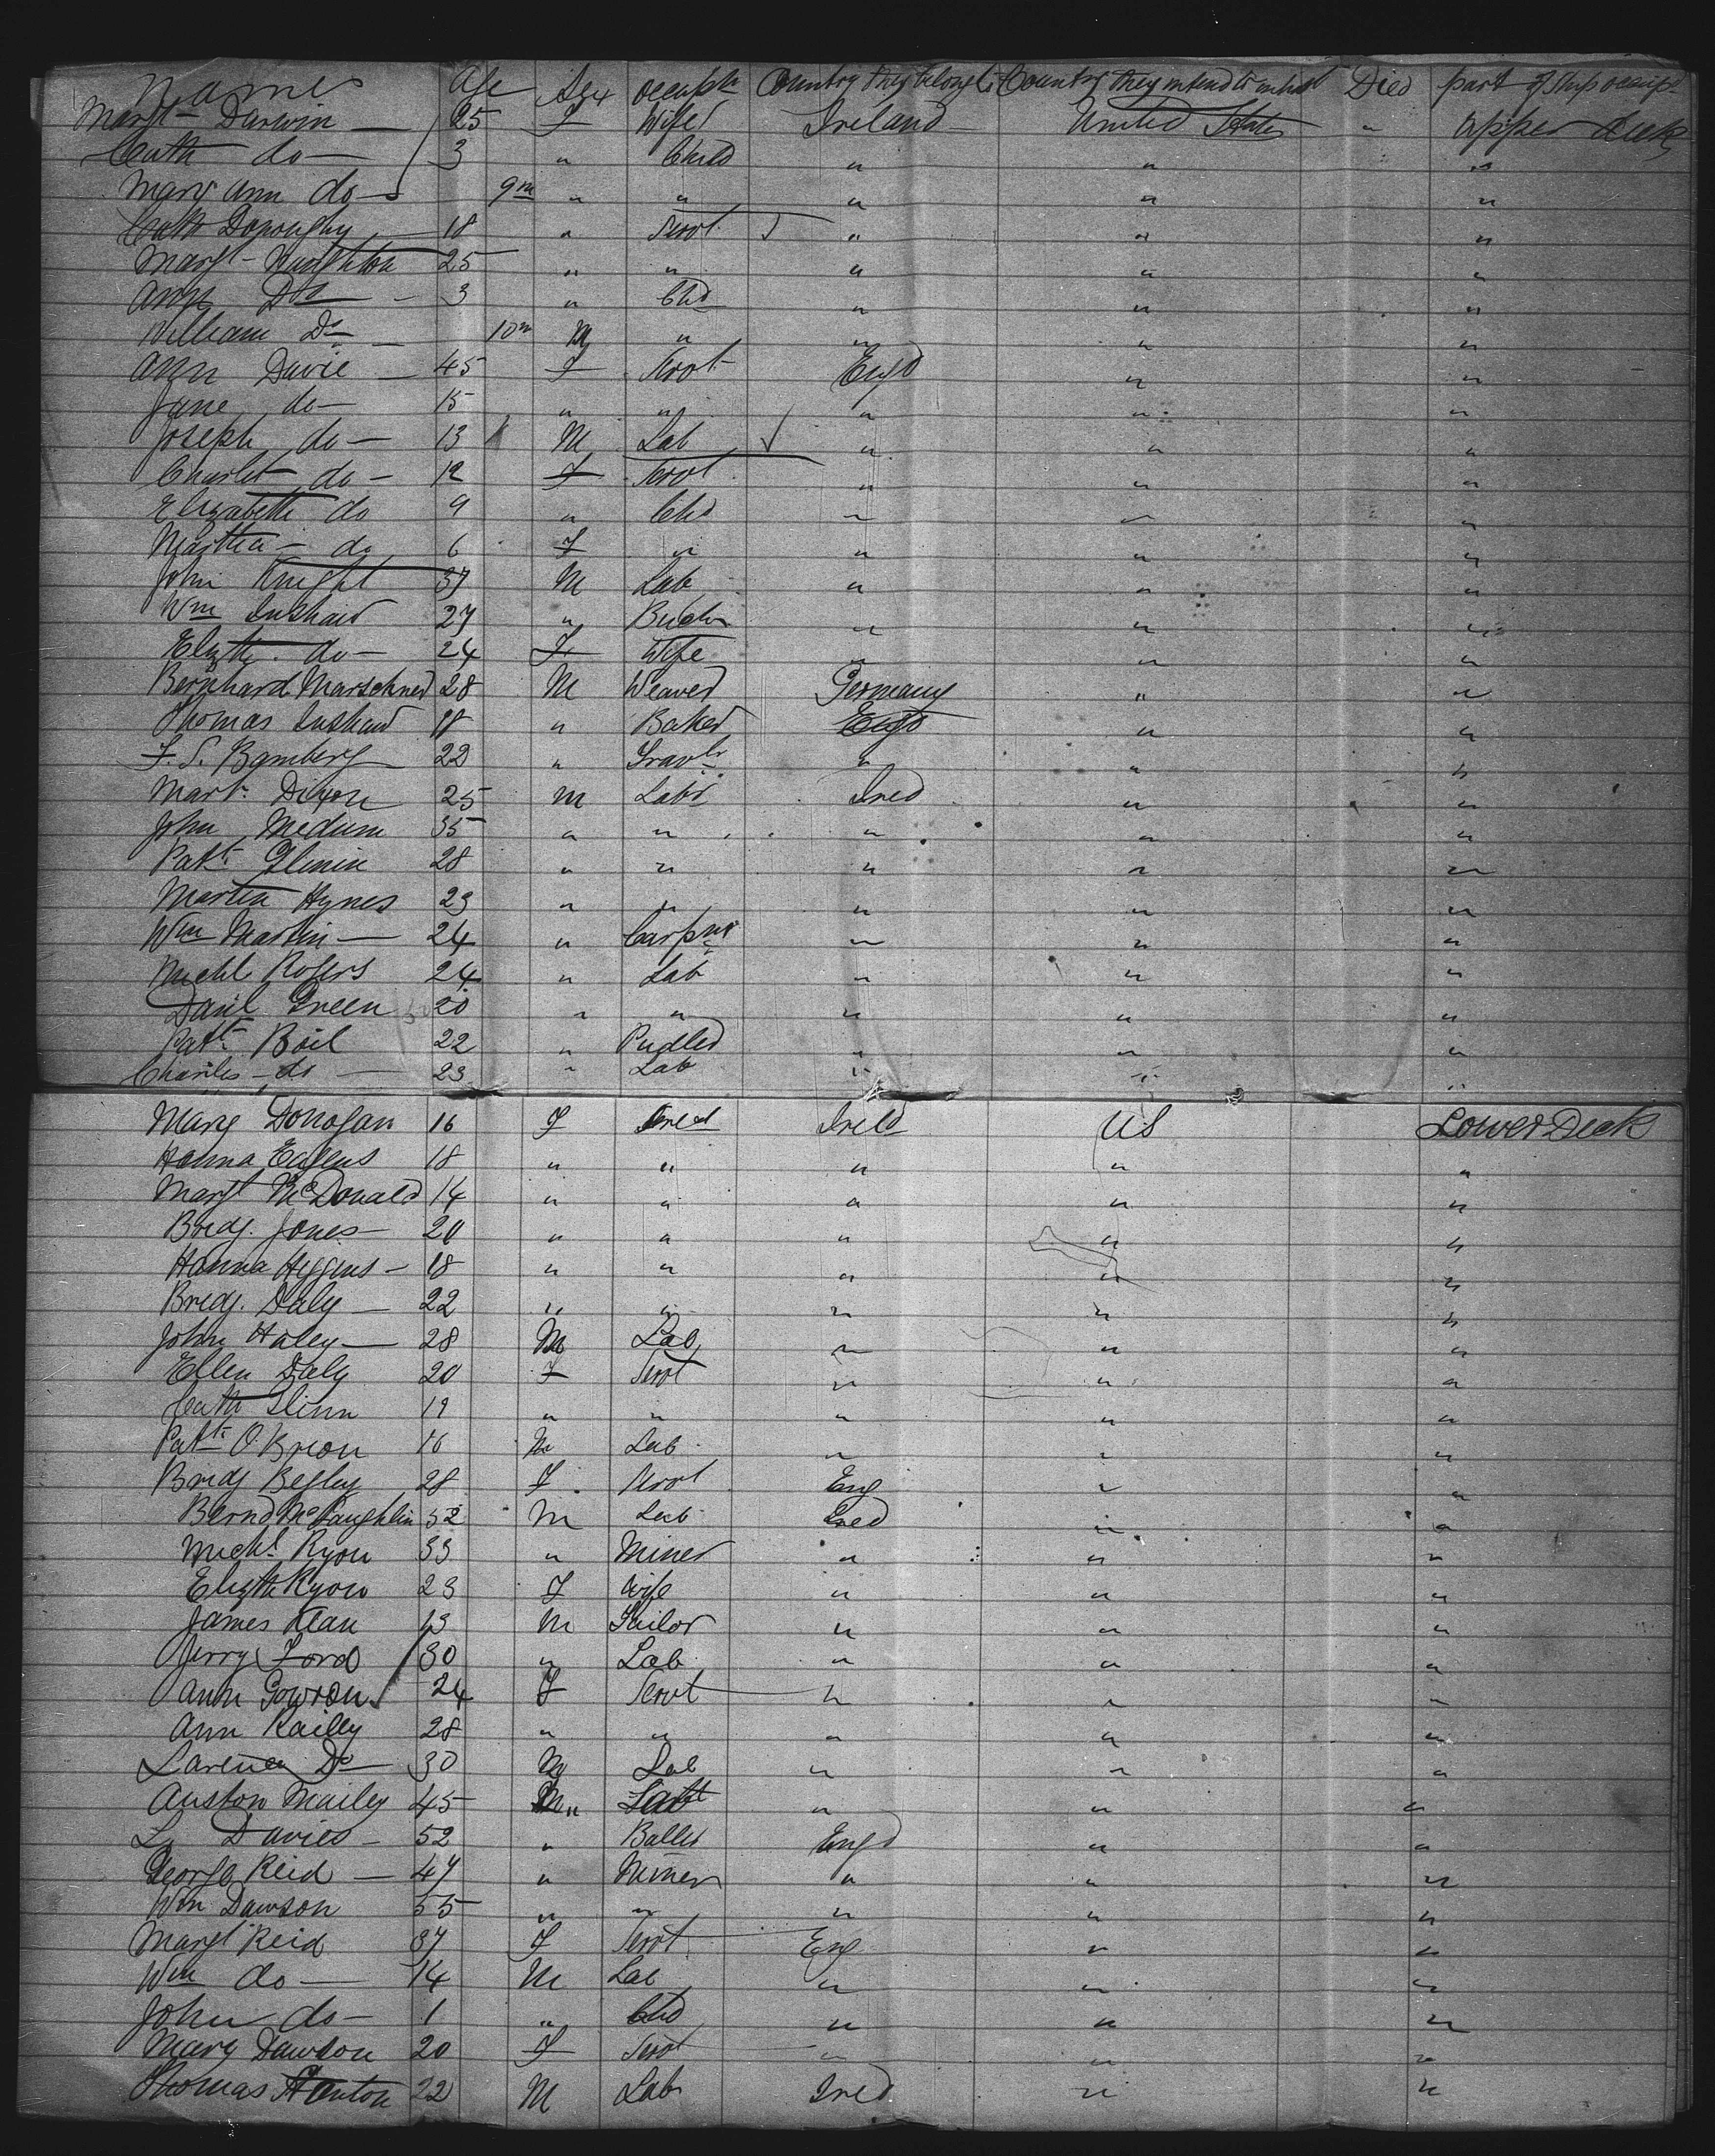 Names Age Sex Occuptn Country they belong to Country they intend to inhabit Died part of Ship occupd
Margt Darwin — 25 F Wife Ireland United States " upper deck
Cath do — 3 " Child " " "
Mary Ann do — 9m " " " " "
Cath Donoughy — 18 " Servt " " "
Margt Naughton 25 " " " " "
Ann Do — 3 " Chd " " "
William Do — 10m M " " " "
Ann Davie — 45 F Servt Engd " "
Jane do — 15 " " " " "
Joseph do — 13 M Lab " " "
Charlet do — 12 F Servt " " "
Elizabeth do 9 " Chd " " "
Martha — do 6 F " " " "
John Knight 37 M Lab " " "
Wm Inshaw 27 " " " "
Elizth do — 24 F Wife " " "
Bernhard Marschner 28 M Weaver Germany " "
Thomas Inshaw 18 " Baker Engd " "
F. S. Bamberg 22 " " " "
Mart. Dixon 25 M Labr Ired " "
John Medum 35 " " " " "
Patt Glinin 28 " " " " "
Martin Hynes 23 " " " " "
Wm Martin — 24 " Carpnr " " "
Michl Rogers 24 " Lab " " "
Danil Green 20 " " " " "
Patt Boil 22 " Pudler " " "
Charles do — 23 " Lab " " "
Mary Donogan 16 F Ireld US Lower Deck
Hanna Eagens 18 " " " " "
Margt McDonald 14 " " " " "
Bredg. Jones — 20 " " " " "
Hanna Higgins — 18 " " " " "
Bredg. Daly — 22 " " " " "
John Haley — 28 M Lab " " "
Ellen Daly 20 F Servt " " "
Cath Glinn 19 " " " " "
Patt O.Brion 16 M Lab " " "
Bridg Begley 28 F Servt Eng " "
Bernd McLaughlin 52 M Lab Ired " "
Michl Ryon 33 " Miner " " "
Elizth Ryon 23 F Wife " " "
James Klan 13 M Tailor " " "
Jerry Ford 30 " Lab " " "
Ann Gowron 24 F Servt " " "
Ann Railly 28 " " " " "
Larence Do — 30 M Lab " " "
Auston Mailey 45 M " " " "
L. Davies — 52 " Engd " "
George Reid — 47 " Miner " " "
Wm Dawson 55 " " " " "
Margt Reid 37 F Servt Eng " "
Wm do — 14 M Lab " " "
John do — 1 " Chd " " "
Mary Dawson 20 F Servt " " "
Thomas Stenton 22 M Lab Ired " "